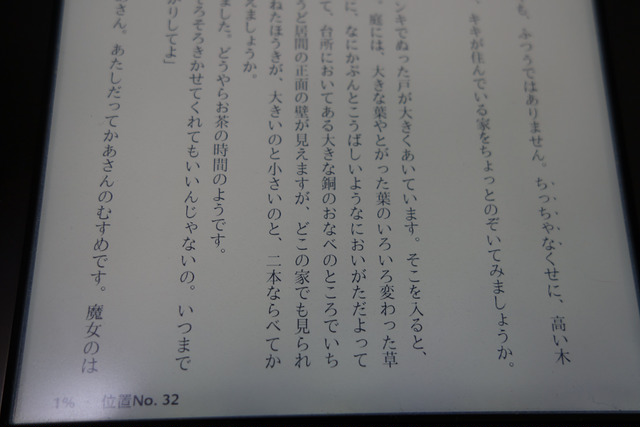 も、ふつうではありません。ちっちゃなくせに、高い木
、キキが住んでいる家をちょっとのぞいてみましょうか。
ンキでぬった戸が大きくあいています。そこを入ると、
。庭には、大きな葉やとがった葉のいろいろ変わった草
に、なにかぷんとこうばしいようなにおいがただよって
て、台所においてある大きな銅のおなべのところでいち
うど居間の正面の壁が見えますが、どこの家でも見られ
ねたほうきが、大きいのと小さいのと、二本ならべてか
えましょうか。
ました。どうやらお茶の時間のようです。
ろそろきかせてくれてもいいんじゃないの。いつまで
がりしてよ」
あさん。あたしだってかあさんのむすめです。魔女のは
1% 位置No. 32